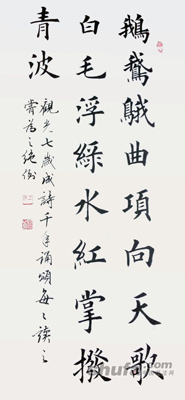 鵝鵞曲項向天歌
白毛浮綠水紅掌撥
青波
觀光七歲成詩千年誦頌每々讀之
為之絕倒